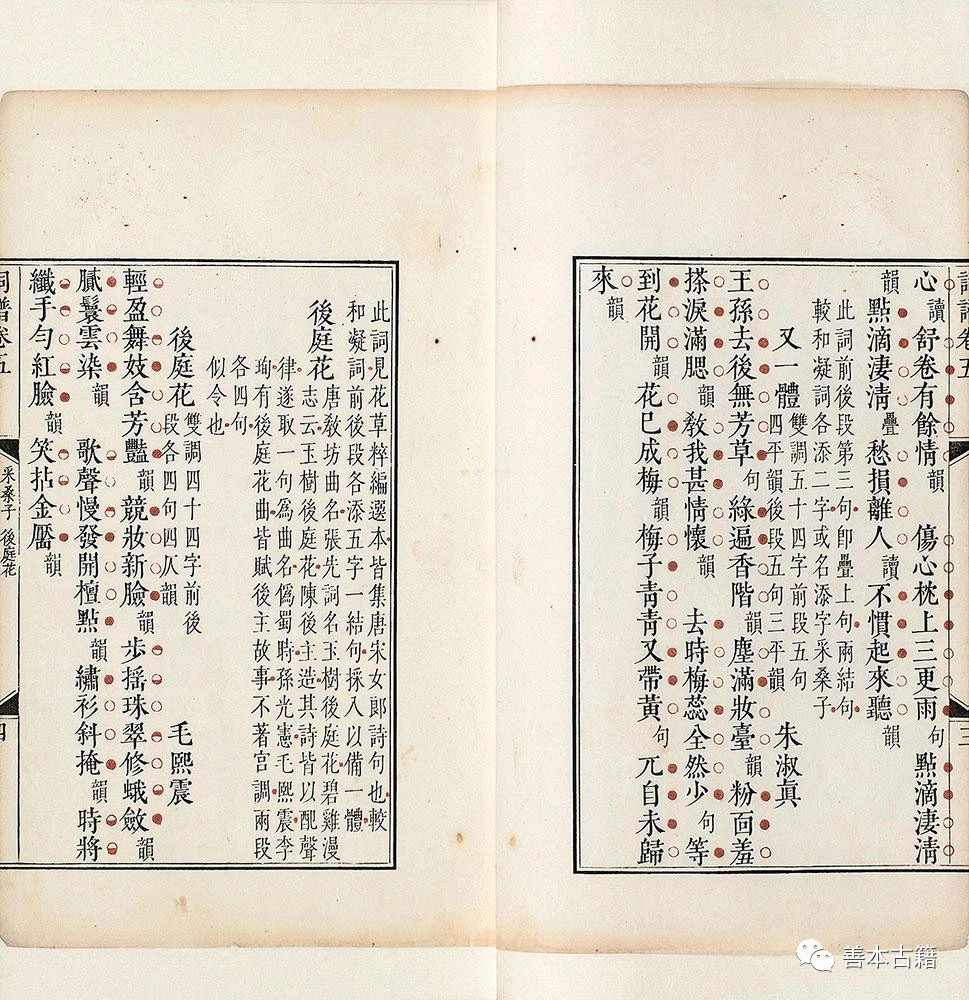 卷五
三
心讀舒卷有餘情韻 傷心枕上三更雨句點滴淒清
韻點滴淒清疊愁損離人讀不慣起來聽韻
此詞前後段第三句卽疊上句兩結句
較和凝詞各添二字或名添字采桑子
又一體 雙調五十四字前段五句
四平韻後段五句三平韻 朱淑真
王孫去後無芳草句綠遍香階韻塵滿妝臺韻粉面羞
搽淚滿腮韻教我甚情懷韻 去時梅蕊全然少句等
到花開韻花已成梅韻梅子青青又帶黃句兀自未歸
來韻
此詞見花草粹編選本皆集唐宋女郎詩句也較
和凝詞前後段各添五字一結句採入以備一體
後庭花 唐教坊曲名張先詞名玉樹後庭花碧雞漫
志云玉樹後庭花陳後主造其詩皆以配聲
律遂取一句爲曲名僞蜀時孫光憲毛熙震李
珣有後庭花曲皆賦後主故事不著宮調兩段
各四句
似令也
後庭花 雙調四十四字前後
段各四句四仄韻 毛熙震
輕盈舞妓含芳豔韻競妝新臉韻步搖珠翠修蛾斂韻
膩鬟雲染韻 歌聲慢發開檀點韻繡衫斜掩韻時將
纖手勻紅臉韻笑拈金靨韻
詞譜卷五
采桑子 後庭花
四
善本古籍